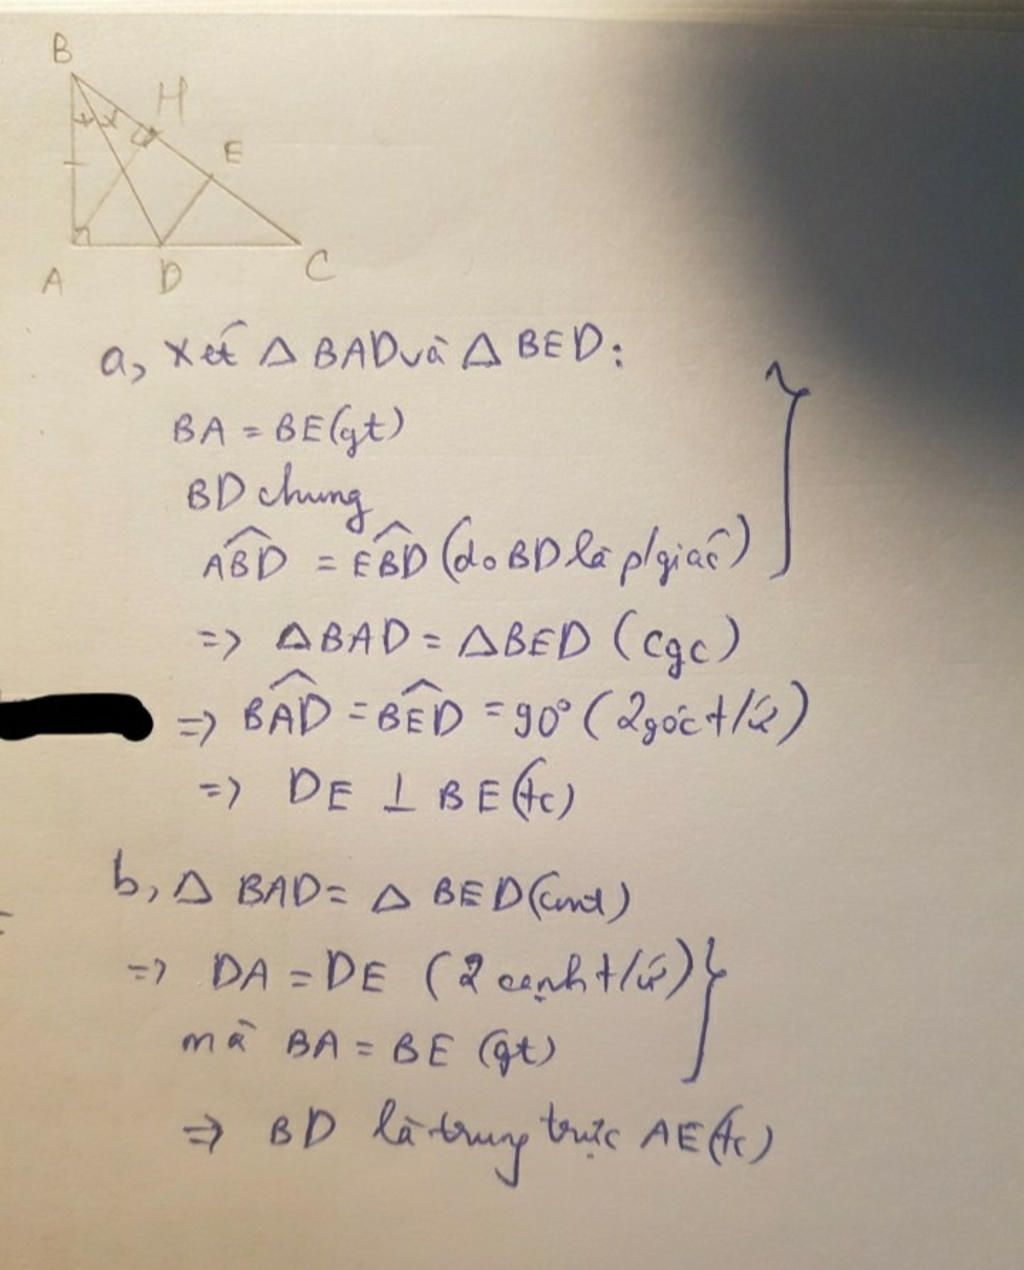 B
H
E
A D C
a, Xét △ BAD và △ BED:
BA = BE (gt)
BD chung
ABD = EBD (do BD là p/giác)
=> △BAD = △BED (cgc)
=> BAD = BED = 90° (2 góc t/ứ)
=> DE ⊥ BE (tc)
b, △ BAD = △ BED (cmt)
=> DA = DE (2 cạnh t/ứ)
mà BA = BE (gt)
=> BD là trung trực AE (tc)